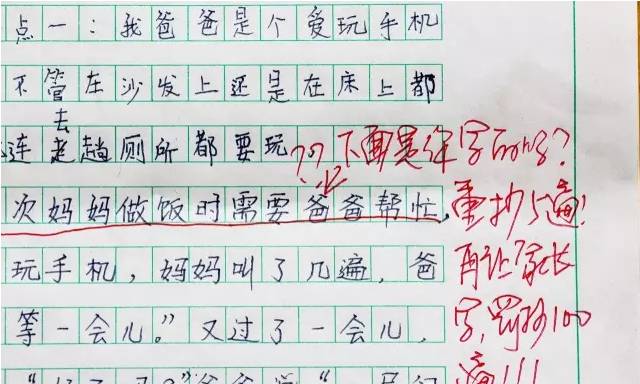 点一：我爸爸是个爱玩手机
不管在沙发上还是在床上都
去
连趟厕所都要玩
?? 下面是 字 ?
次妈妈做饭时需要爸备帮忙，
重抄5遍!
玩手机，妈妈叫了几遍，爸
再让家长
等一会儿。”又过了一会儿，
字，罚抄100
遍!!!